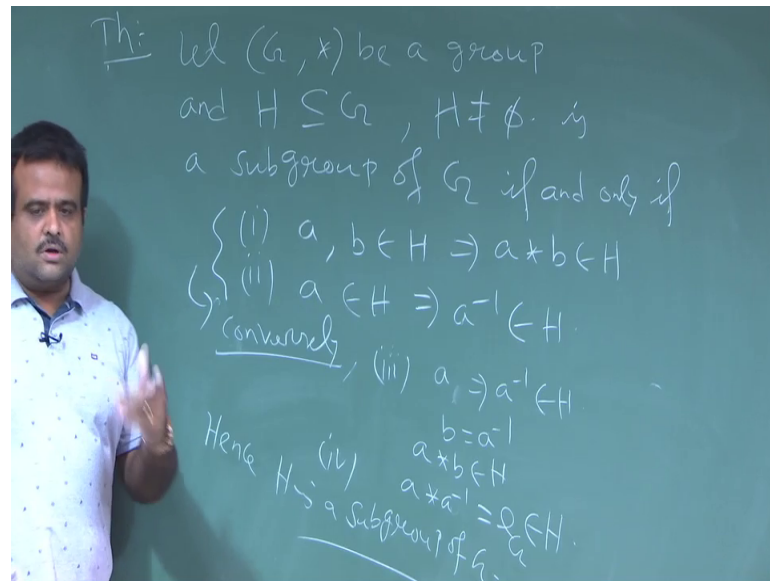 Th: Let (G, *) be a group
and H ⊆ G, H ≠ ϕ. is
a subgroup of G if and only if
(i) a, b ∈ H ⇒ a * b ∈ H
(ii) a ∈ H ⇒ a⁻¹ ∈ H.
Conversely, (iii) a ⇒ a⁻¹ ∈ H.
b = a⁻¹
(iv) a * b ∈ H
a * a⁻¹ = e_G ∈ H.
Hence H is a subgroup of G.